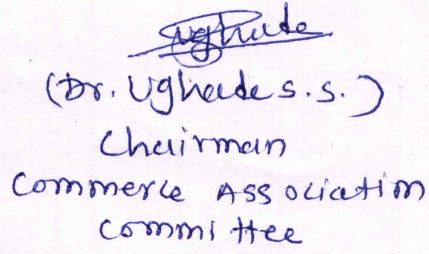 Ughade
(Dr. Ughade s.s.)
Chairman
Commerce Association
Committee